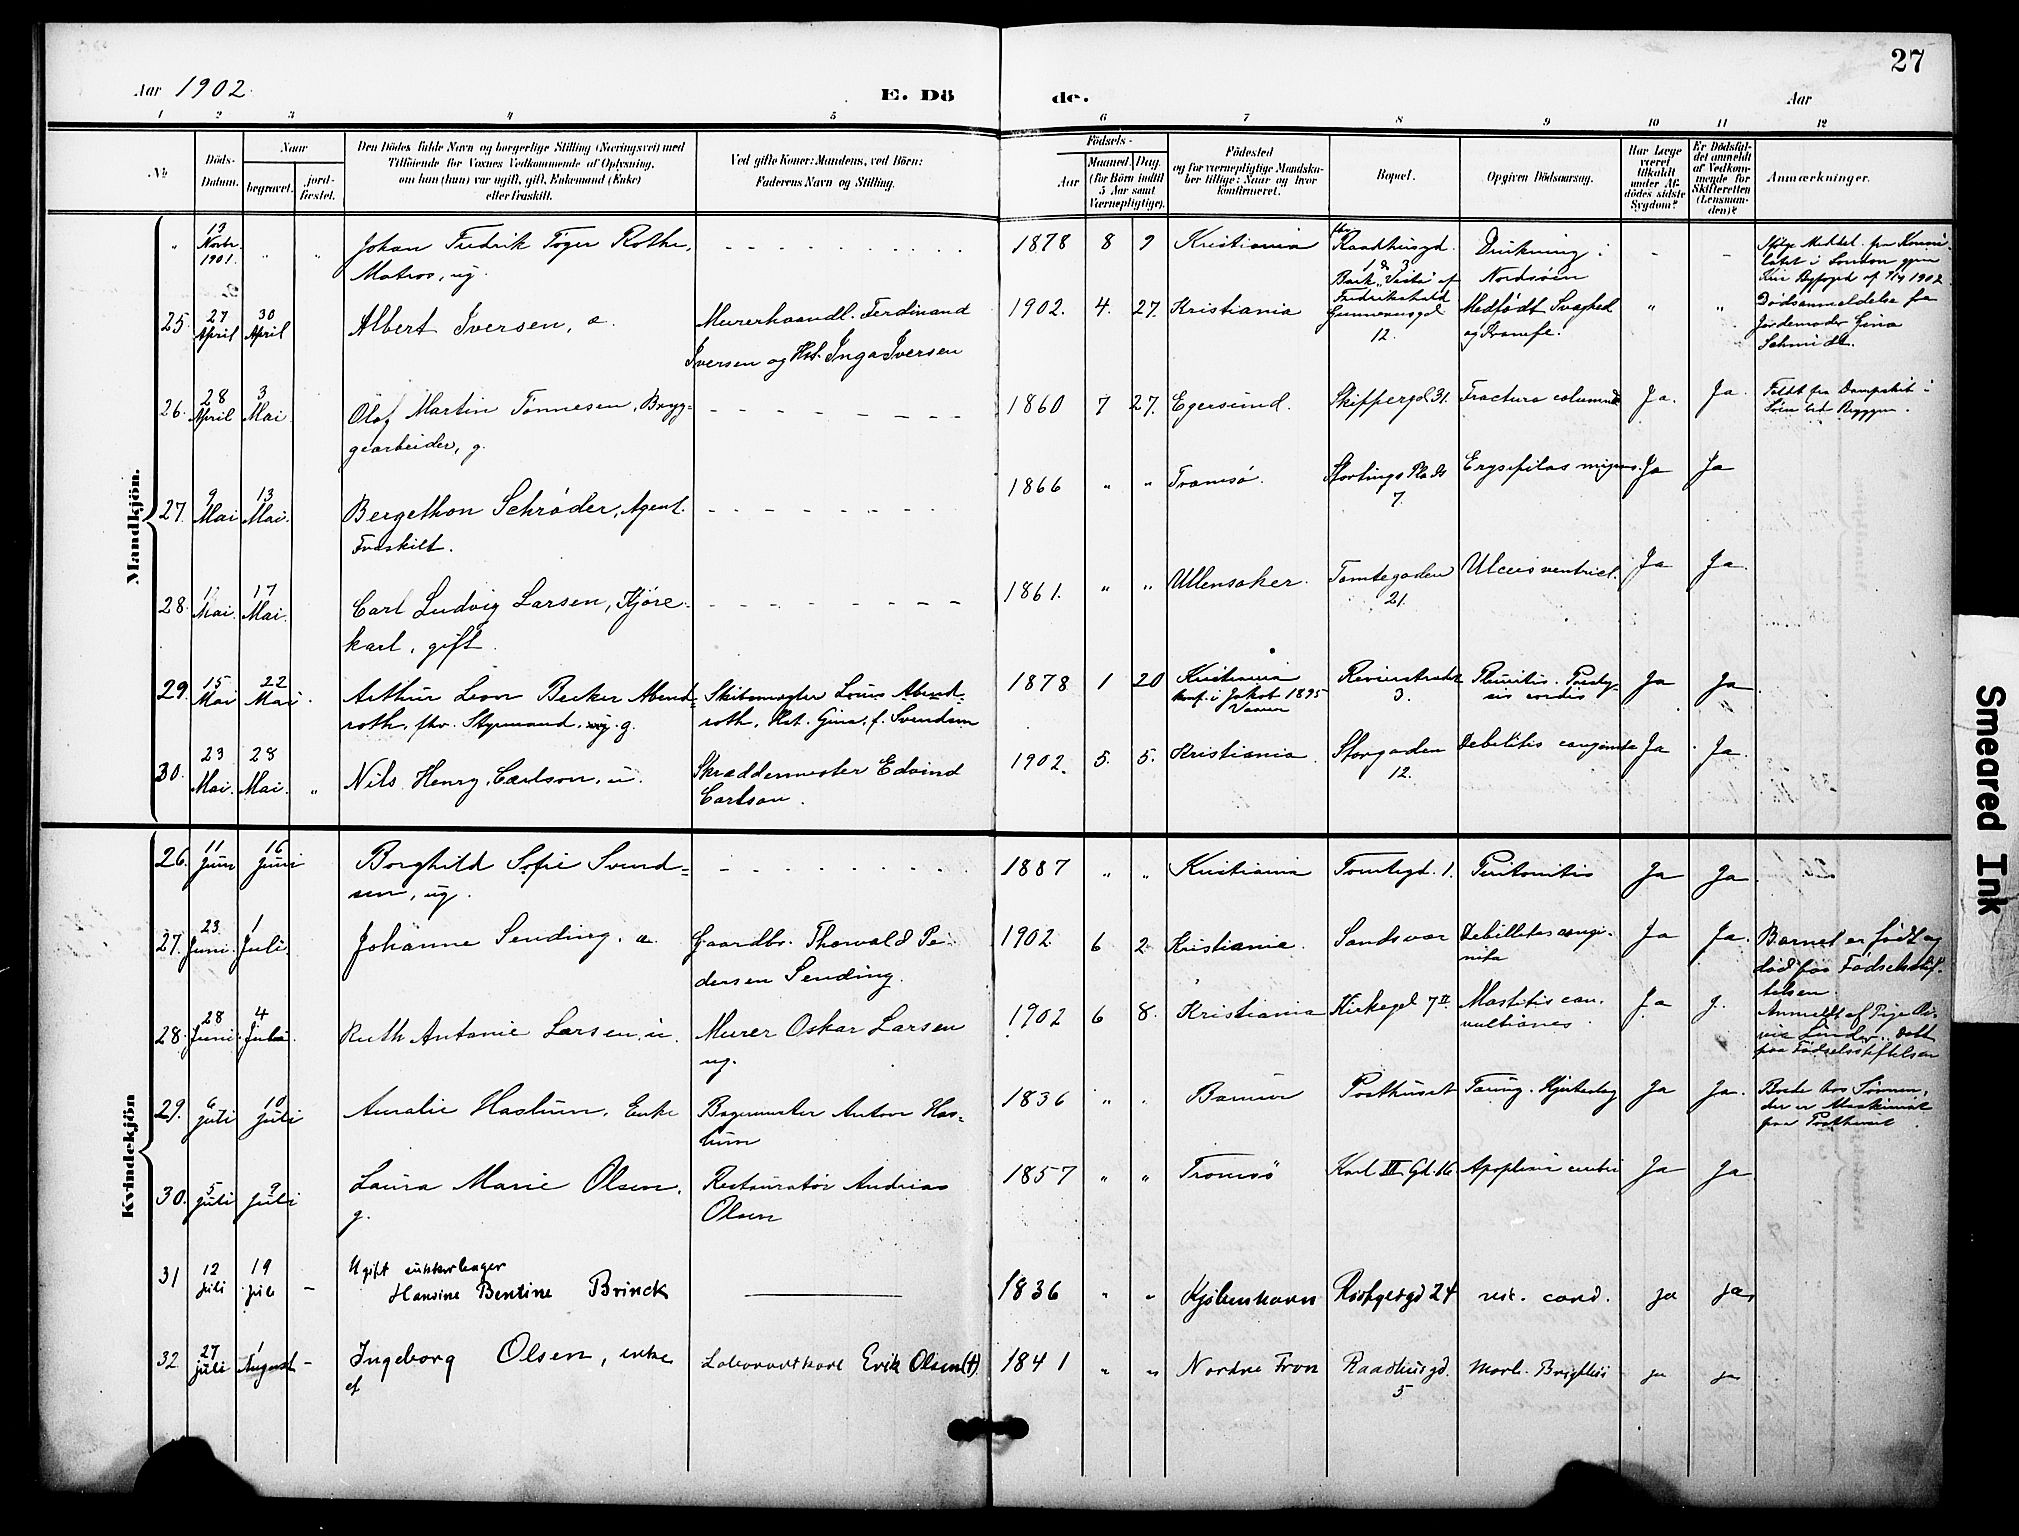 27
Aar 1902.
E. Dö de.
Aar
1 2 3 4 5 6 7 8 9 10 11 12
№
Döds-
Datum.
Naar
begravet.
jord-
fæstet.
Den Dödes fulde Navn og borgerlige Stilling (Næringsvei) med
Tilföiende for Voxnes Vedkommende af Oplysning,
om han (hun) var ugift, gift, Enkemand (Enke)
eller fraskilt.
Ved gifte Koner: Mandens, ved Börn:
Faderens Navn og Stilling.
Födsels-
Aar
Maaned. Dag.
(for Börn indtil
5 Aar samt
Værnepligtige).
Födested
og for værnepligtige Mandska-
ber tillige: Naar og hvor
konfirmeret.
Bopæl.
Opgiven Dödsaarsag.
Har Læge
været
tilkaldt
under Af-
dödes sidste
Sygdom?
Er Dödsfal-
det anmeldt
af Vedkom-
mende for
Skifteretten
(Lensman-
den)?
Anmærkninger.
Mandkjön.
" 19 Novbr. 1901. " "
Johan Fredrik Töger Rothe,
Matros, ug.
1878 8 9 Kristiania
Raadhusgd.
Bark "Vesta" af
Fredrikshald
Drukning i
Nordsöen
- -
Ifölge Meddel. fra Konsu-
latet i London gjen
Kra Byfoged af 7/4 1902
25. 27 April 30 April
Albert Iversen, æ.
Murerhaandl. Ferdinand
Iversen og Hst. Inga Iversen
1902. 4. 27. Kristiania
Gunnerusgd
12.
Medfödt Svaghed
" "
Dödsanmeldelse fra
Jordemoder Gina
Schmidt.
26. 28 April 3 Mai
Olaf Martin Tönnesen, Bryg-
gearbeider, g.
1860 7 27. Egersund. Skippergd. 31. Fractura columnae Ja. Ja.
Faldt fra Dampskib i
Söen ved Bryggen.
27. 9 Mai 13 Mai.
Bergethon Schröder, Agent.
Fraskilt.
1866 " " Tromsö.
Stortings Plads
7.
Erysipelas migrans. Ja Ja
28. Mai. 17 Mai.
Carl Ludvig Larsen, Kjöre-
karl, gift.
1861. " " Ullensaker.
Tomtegaden
21.
Ulcus ventricl. Ja Ja.
29. 15 Mai 22 Mai.
Arthur Leon Becker Abend-
roth, fhv. Styrmand, g.
Skibsmægler Louis Abend-
roth, Hst. Gina, f. Svendsen
1878 1 20
Kristiania
konf. i Jakob 1895
3.
Ja Ja
30. 23 Mai. 28 Mai. "
Nils Henry Carlson, u.
Skræddermester Edvind
Carlson.
1902. 5. 5. Kristiania
Storgaden
12.
Debilitis congenita Ja Ja.
Kvindekjön
26. 11 Juni 16 Juni
Borghild Sofie Svend-
sen, ug.
1887 " " Kristiania Tomtegd. 1. Peritonitis Ja Ja
27. 23 Juni. 1 Juli.
Johanne Sending, æ.
Gaardbr. Thorvald Pe-
dersen Sending.
1902. 6 2. Kristiania. Sandsvær
Debilitas conge-
nita
Ja Ja.
Barnet er födt og
död paa Födselsstif-
telsen.
28. 28 Juni. 4 Juli
Ruth Antonie Larsen, u.
Murer Oskar Larsen
ug.
1902 6 8. Kristiania Kirkegd 7 II
Mastitis con-
vultiones.
Ja J.
Anmeldt af Pige
Linder. Död
paa Födselsstiftelsen
29. 6 juli 10 juli
Amalie Haslum, Enke
Bagermester Anton Has-
lum
1836 " . Bærum Posthuset Tæring. Hjerteslag Ja Ja.
Bode hos Sönnen,
der er Maskinist
paa Posthuset.
30. 5 juli 9 juli
Laura Marie Olsen,
g.
Restauratör Andreas
Olsen
1857 " " Tromsö Karl XII Gd. 16. Apoplexia cerebri Ja Ja
31 12 juli 19 juli -
Ugift sukkerbager
Hansine Bentine Brinck
1836 " " Kjöbenhavn Rostgesgd 24 vit. cord. ja ja,
32 27 juli 1 August -
Ingeborg Olsen, enke
ef
Erik Olsen (†)
1841 " " Nordre Fron
Raadhusgd.
5
Morb. Brightii ja ja
Smeared Ink